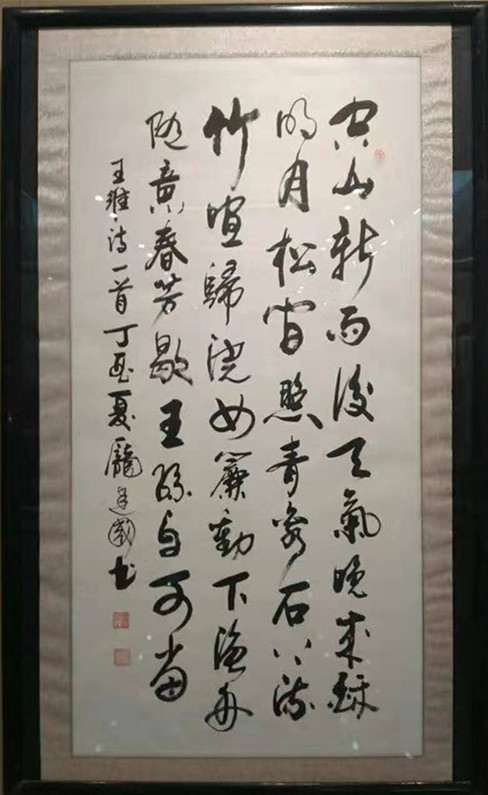 空山新雨後天氣晚来秋
明月松间照清泉石上流
竹喧歸浣女簾動下渔舟
随意春芳歇王孫自可留
王維诗一首丁酉夏龐建國书